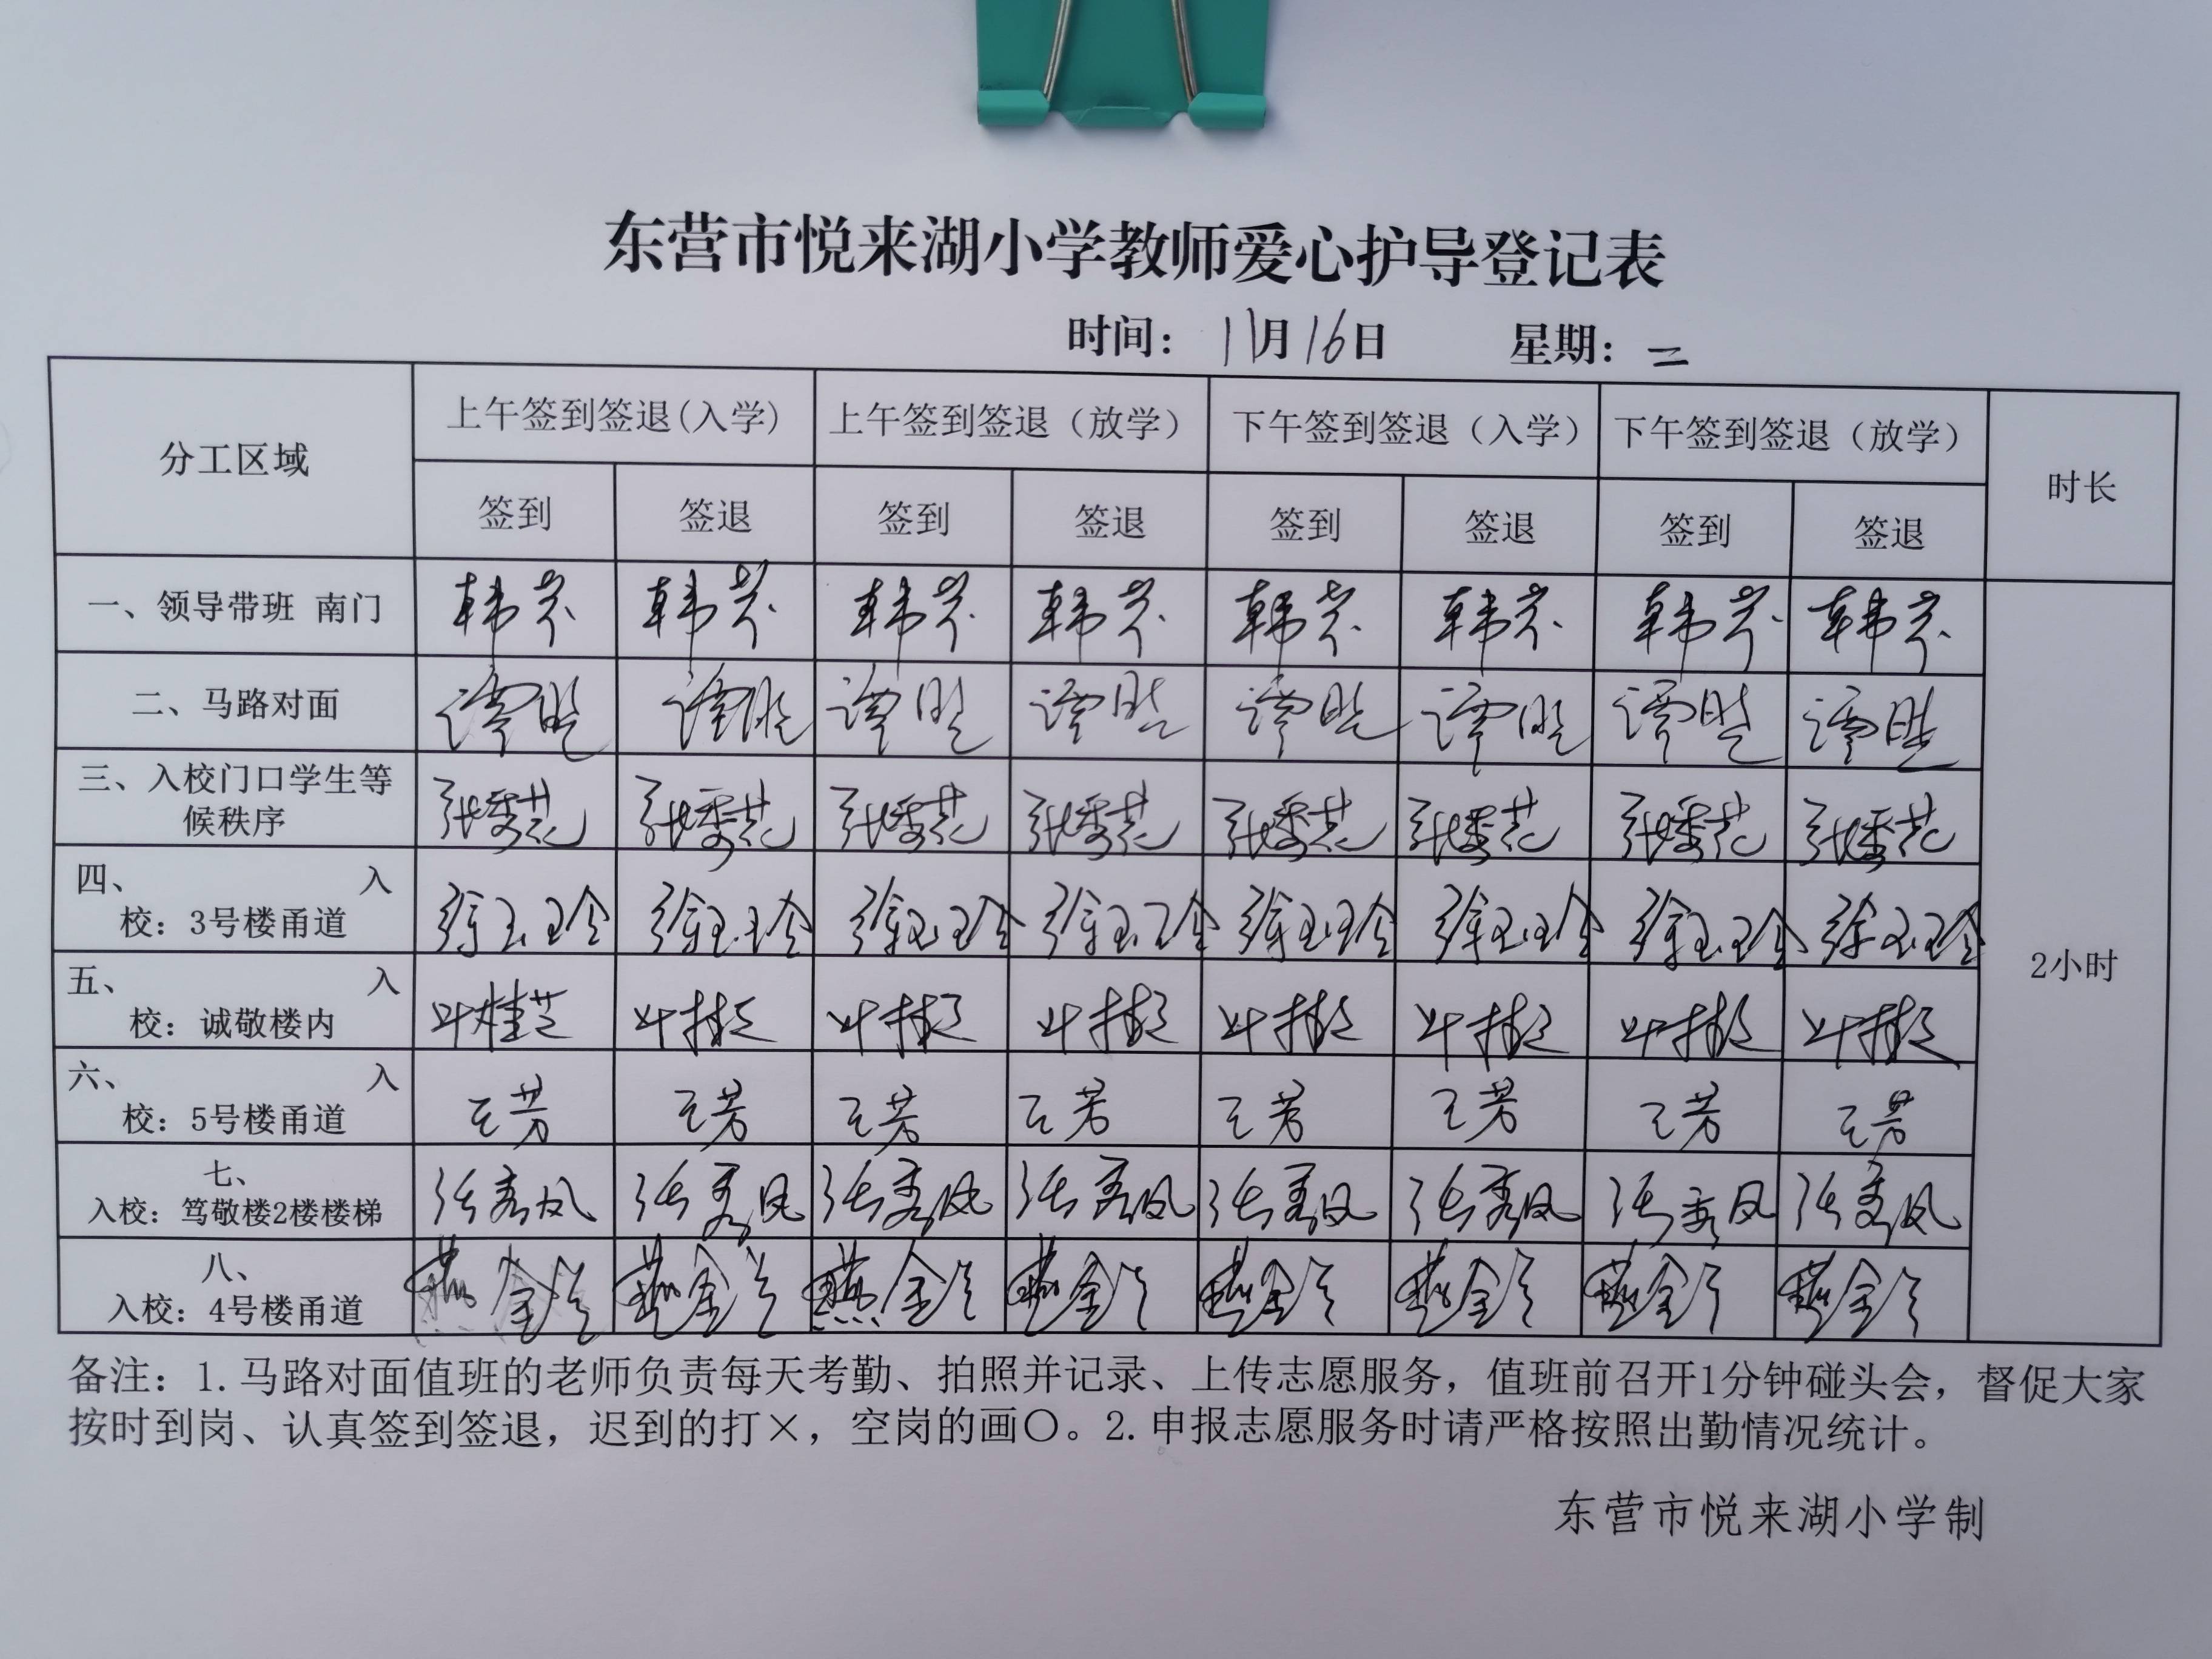 东营市悦来湖小学教师爱心护导登记表
时间：11月16日 星期：二
分工区域 上午签到签退(入学) 上午签到签退（放学） 下午签到签退（入学） 下午签到签退（放学） 时长
签到 签退 签到 签退 签到 签退 签到 签退
一、领导带班 南门 韩芬 韩芬 韩芬 韩芬 韩芬 韩芬 韩芬 韩芬
二、马路对面 谭 谭 谭 谭 谭 谭 谭 谭
三、入校门口学生等
候秩序 张秀花 张秀花 张秀花 张秀花 张秀花 张秀花 张秀花 张秀花
四、 入
校：3号楼甬道 徐玉玲 徐玉玲 徐玉玲 徐玉玲 徐玉玲 徐玉玲 徐玉玲 徐玉玲
2小时
五、 入
校：诚敬楼内 叶桂芝 叶桂芝 叶桂芝 叶桂芝 叶桂芝 叶桂芝 叶桂芝 叶桂芝
六、 入
校：5号楼甬道 王芳 王芳 王芳 王芳 王芳 王芳 王芳 王芳
七、
入校：笃敬楼2楼楼梯 张秀凤 张秀凤 张秀凤 张秀凤 张秀凤 张秀凤 张秀凤 张秀凤
八、
入校：4号楼甬道 燕金 燕金 燕金 燕金 燕金 燕金 燕金 燕金
备注：1.马路对面值班的老师负责每天考勤、拍照并记录、上传志愿服务，值班前召开1分钟碰头会，督促大家
按时到岗、认真签到签退，迟到的打×，空岗的画〇。2.申报志愿服务时请严格按照出勤情况统计。
东营市悦来湖小学制